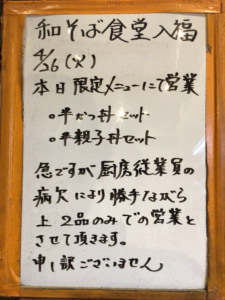 和そば食堂入福
4/26(火)
本日限定メニューにて営業
○牛だっ丼セット
○平親子丼セット
急ですが厨房従業員の
病欠により勝手ながら
上2品のみでの営業と
させて頂きます。
申し訳ございません